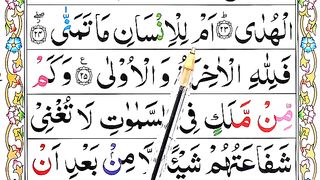 الْهُدٰی ﴿۲۳﴾ اَمْ لِلْاِنْسَانِ مَا تَمَنّٰی ﴿۲۴﴾
فَلِلّٰهِ الْاٰخِرَةُ وَ الْاُوْلٰی ﴿۲۵﴾ وَ كَمْ
مِّنْ مَّلَكٍ فِی السَّمٰوٰتِ لَا تُغْنِیْ
شَفَاعَتُهُمْ شَیْـًٔا اِلَّا مِنْۢ بَعْدِ اَنْ